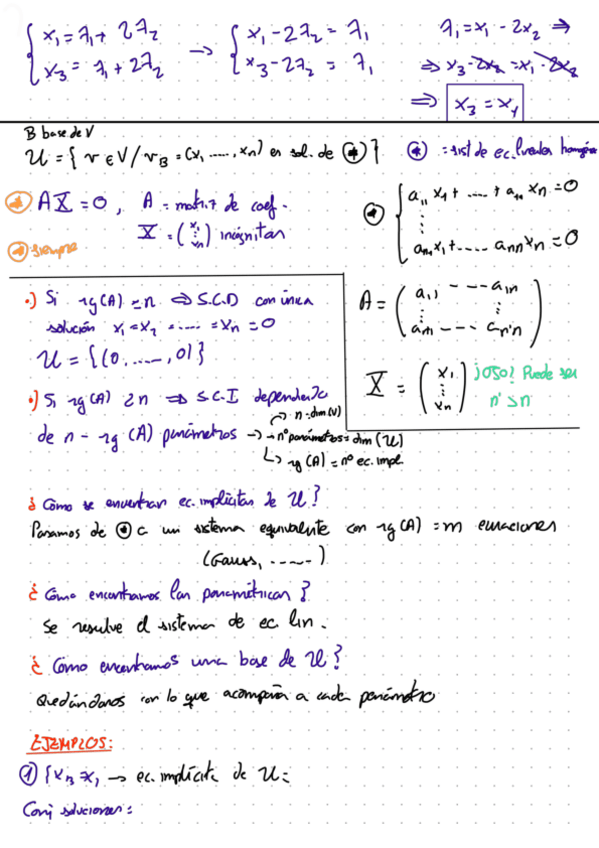 { x₁ = λ₁ + 2λ₂ → { x₁ - 2λ₂ = λ₁ λ₁ = x₁ - 2x₂ ⇒
{ x₃ = λ₁ + 2λ₂ { x₃ - 2λ₂ = λ₁ ⇒ x₃ - 2x₂ = x₁ - 2x₂
⇒ x₃ = x₁
B base de V
U = { v ∈ V / v_B = (x₁, ...., xₙ) es sol. de (*) } (*) : sist de ec. lineales homogéneo
(*) AX = 0, A = matriz de coef.
X = (x₁ ⋮ xₙ) incógnitas
(*) siempre
(*) { a₁₁ x₁ + .... + a₁ₙ xₙ = 0
⋮
aₙ'₁ x₁ + ..... aₙ'ₙ xₙ = 0
•) Si rg(A) = n ⇒ S.C.D con única
solución x₁ = x₂ = .... = xₙ = 0
U = {(0, ...., 0)}
•) Si rg(A) < n ⇒ S.C.I dependiendo
de n - rg(A) parámetros → nº parámetros = dim(U)
→ n = dim(V)
↳ rg(A) = nº ec. impl.
A = ( a₁₁ --- a₁ₙ
⋮ ⋮
aₙ'₁ --- aₙ'ₙ )
X = ( x₁ ⋮ xₙ ) ¡OJO! Puede ser
n' > n
¿Cómo se encuentran ec. implícitas de U?
Pasamos de (*) a un sistema equivalente con rg(A) = m ecuaciones
(Gauss, .....)
¿Cómo encontramos las paramétricas?
Se resuelve el sistema de ec lin.
¿Cómo encontramos una base de U?
Quedándonos con lo que acompaña a cada parámetro
EJEMPLOS:
① { x₃ = x₁ → ec. implícita de U:
Conj soluciones: